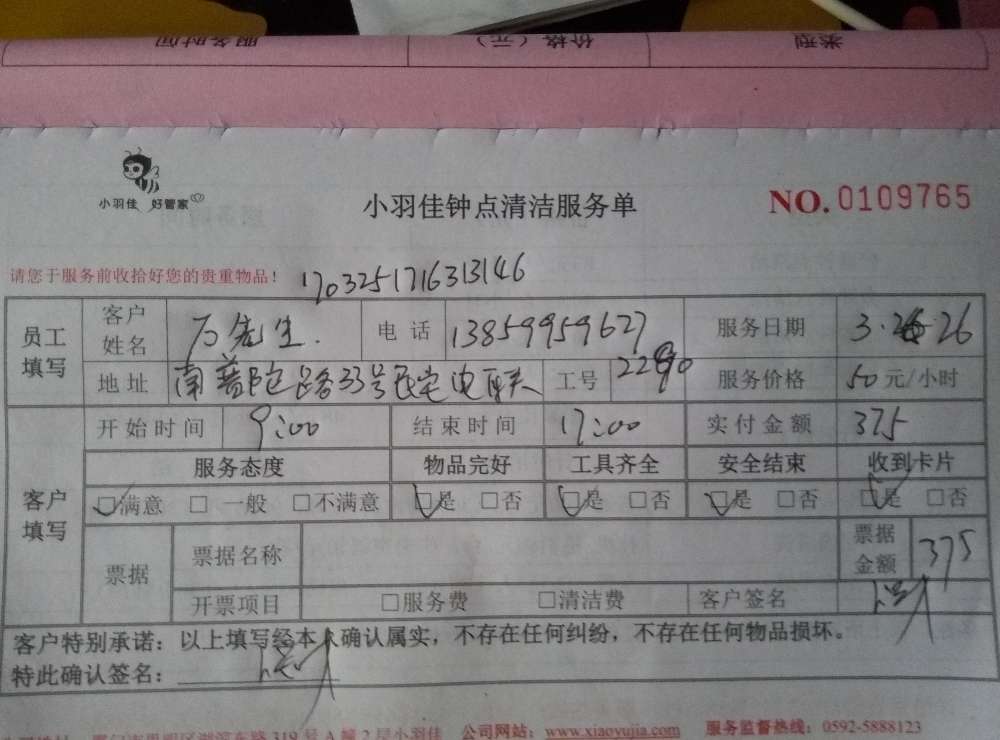 类型 价格（元） 服务时间
小羽佳 好管家
小羽佳钟点清洁服务单
NO. 0109765
请您于服务前收拾好您的贵重物品！
170325171631314​6
员工填写 客户姓名 万先生. 电话 13859959627 服务日期 3.26
地址 南普陀路33号民宅电联 工号 服务价格 50元/小时
客户填写 开始时间 9:00 结束时间 17:00 实付金额 375
服务态度 物品完好 工具齐全 安全结束 收到卡片
☑满意 □一般 □不满意 ☑是 □否 ☑是 □否 ☑是 □否 ☑是 □否
票据 票据名称 票据金额 375
开票项目 □服务费 □清洁费 客户签名
客户特别承诺：以上填写经本人确认属实，不存在任何纠纷，不存在任何物品损坏。
特此确认签名：
319号A幢2层小羽佳 公司网站：www.xiaoyujia.com 服务监督热线：0592-5888123